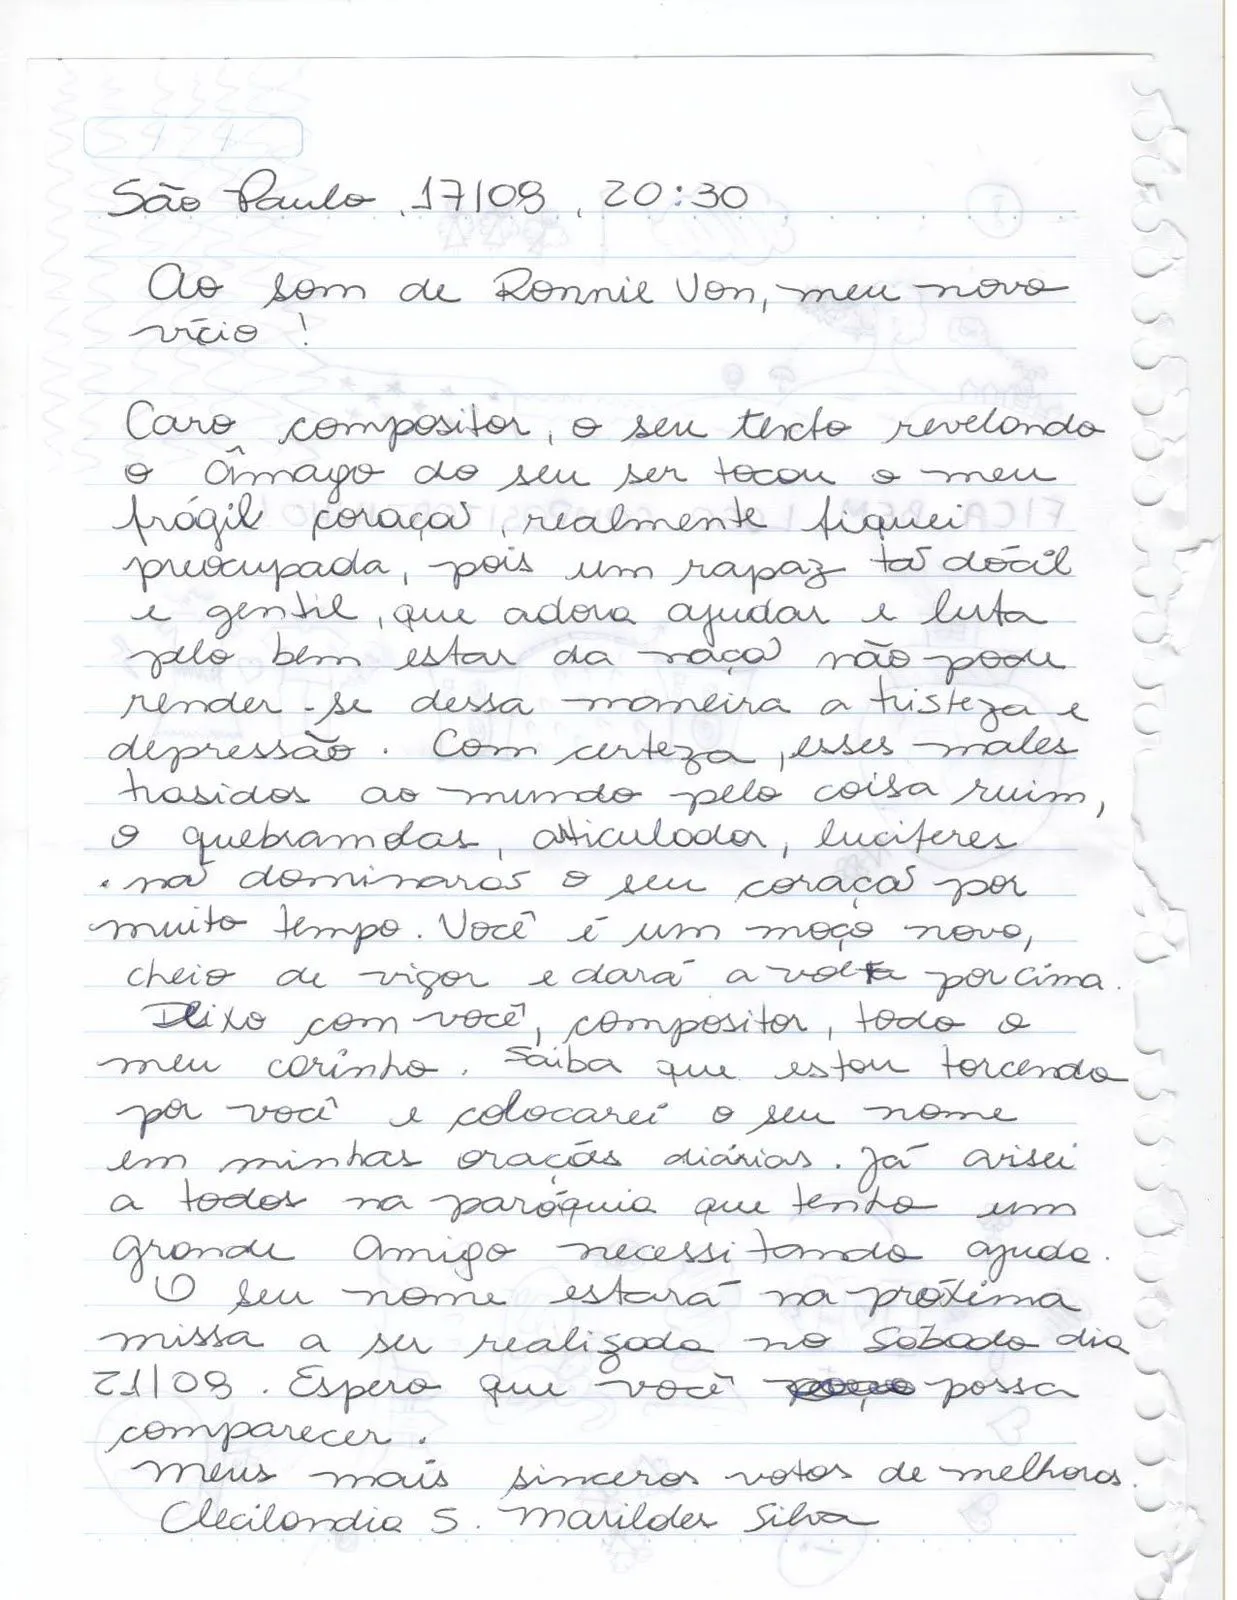 São Paulo, 17/08, 20:30
Ao som de Ronnie Von, meu novo
vício!
Caro compositor, o seu texto revelando
o âmago do seu ser tocou o meu
frágil coraçã, realmente fiquei
preocupada, pois um rapaz tã dócil
e gentil, que adora ajudar e luta
pelo bem estar da naçã não pode
render-se dessa maneira a tristeza e
depressão. Com certeza, esses males
trasidos ao mundo pelo coisa ruim,
o quebramdas, articulador, luciferes
nã dominarás o seu coraçã por
muito tempo. Você é um moço novo,
cheio de vigor e dará a volta por cima.
Deixo com você, compositor, todo o
meu carinho. Saiba que estou torcendo
por você e colocarei o seu nome
em minhas oraçõs diárias. Já avisei
a todos na paróquia que tenho um
grande amigo necessitando ajuda.
O seu nome estará na próxima
missa a ser realizada no Sábado dia
21/08. Espero que você possa
comparecer.
Meus mais sinceros votos de melhoras.
Clecilandia S. Marildes Silva
FICA BEM LOGO